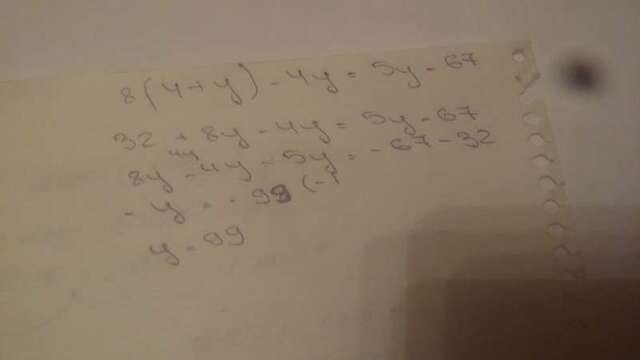 8(4+y)-4y=5y-67
32+8y-4y=5y-67
8y-4y-5y=-67-32
-y=-99 (-1
y=99